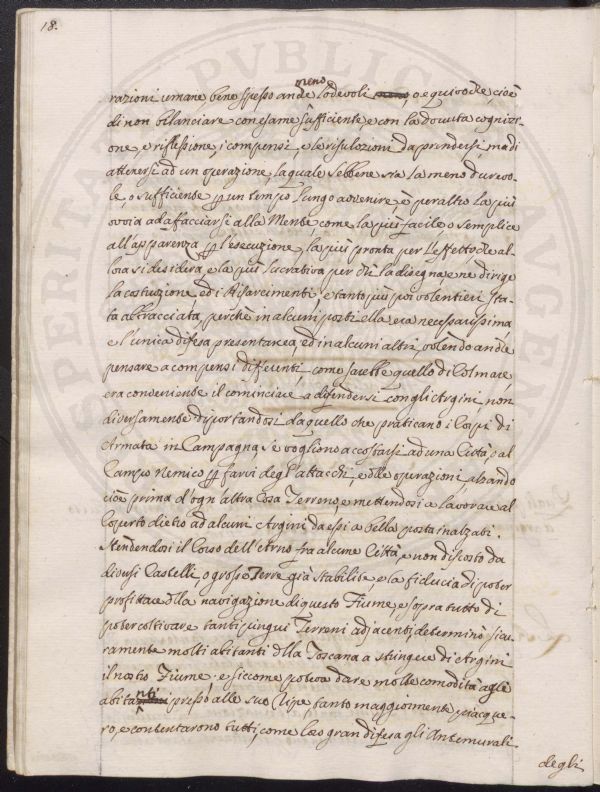 18.
meno
razioni umane bene spesso anche lodevoli, o equivoche, cioè
di non bilanciare con esame sufficiente, e con la dovuta cognizi-
one, e riflessione, i compensi, e le risoluzioni da prendersi, ma di
attenersi ad un operazione, la quale sebbene sia la meno durevo-
le, o sufficiente p un tempo lungo avvenire è peraltro la più
ovvia ad affacciarsi alla Mente, come la più facile, o semplice
all'apparenza p l'esecuzione, la più pronta per l'effetto, che al-
lora si desidera, e la più lucrativa per chi la disegna, e ne dirige
la costruzione, ed i Risarcimenti, e tanto più poi volentieri sta-
ta abbracciata, perche in alcuni posti ella era necessarissima
e l'unica difesa presentanea, ed in alcuni altri, volendo anche
pensare a compensi differenti, come sarebbe quello di Colmare,
era conveniente il cominciare a difendersi con gli Argini, non
diversamente diportandosi da quello che praticano i Corpi di
Armata in Campagna, se vogliono accostarsi ad una Città, o al
Campo Nemico p farvi degl'attacchi, e delle operazioni, alzando
cioè prima d'ogn'altra Cosa Terreno, e mettendosi a lavorare al
Coperto dietro ad alcuni Argini da essi a bella posta inalzati.
Stendendosi il Corso dell'Arno fra alcune Città, e non discosto da
diversi Castelli, o grosse Terre già stabilite, e la fiducia di poter
profittare della navigazione di questo Fiume, e sopra tutto di
poter coltivare tanti pingui Terreni adjacenti determinò sicu-
ramente molti abitanti della Toscana a stringere di Argini
il nostro Fiume; e siccome poteva dare molte comodità agli
abitanti presso alle sue Ripe, tanto maggiormente piacque-
ro, e contentarono tutti, come loro gran difesa gli Antemurali
degli